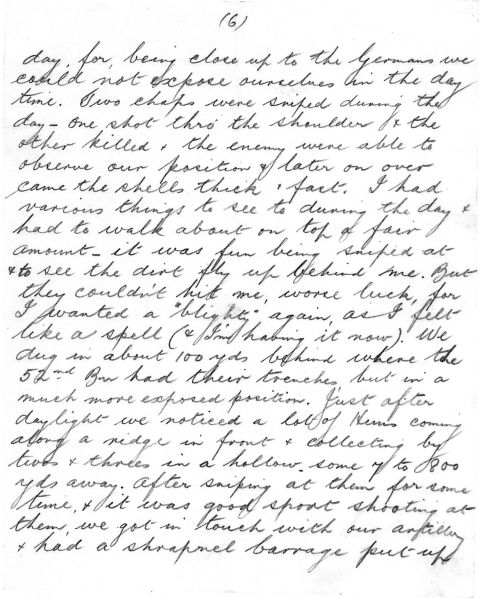 (6)
day, for, being close up to the Germans we
could not expose ourselves in the day
time. Two chaps were sniped during the
day – one shot thro the shoulder & the
other killed & the enemy were able to
observe our position & later on over
came the shells thick & fast. I had
various things to see to during the day &
had to walk about on top a fair
amount – it was fun being sniped at
& to see the dirt fly up behind me. But
they couldn't hit me, worse luck, for
I wanted a "blighty" again, as I felt
like a spell (& I'm having it now). We
dug in about 100 yds behind where the
52nd Bn had their trenches, but in a
much more exposed position. Just after
daylight we noticed a lot of Huns coming
along a ridge in front & collecting by
twos & threes in a hollow some 7 to 800
yds away. After sniping at them for some
time, & it was good sport shooting at
them, we got in touch with our artillery
& had a shrapnel barrage put up